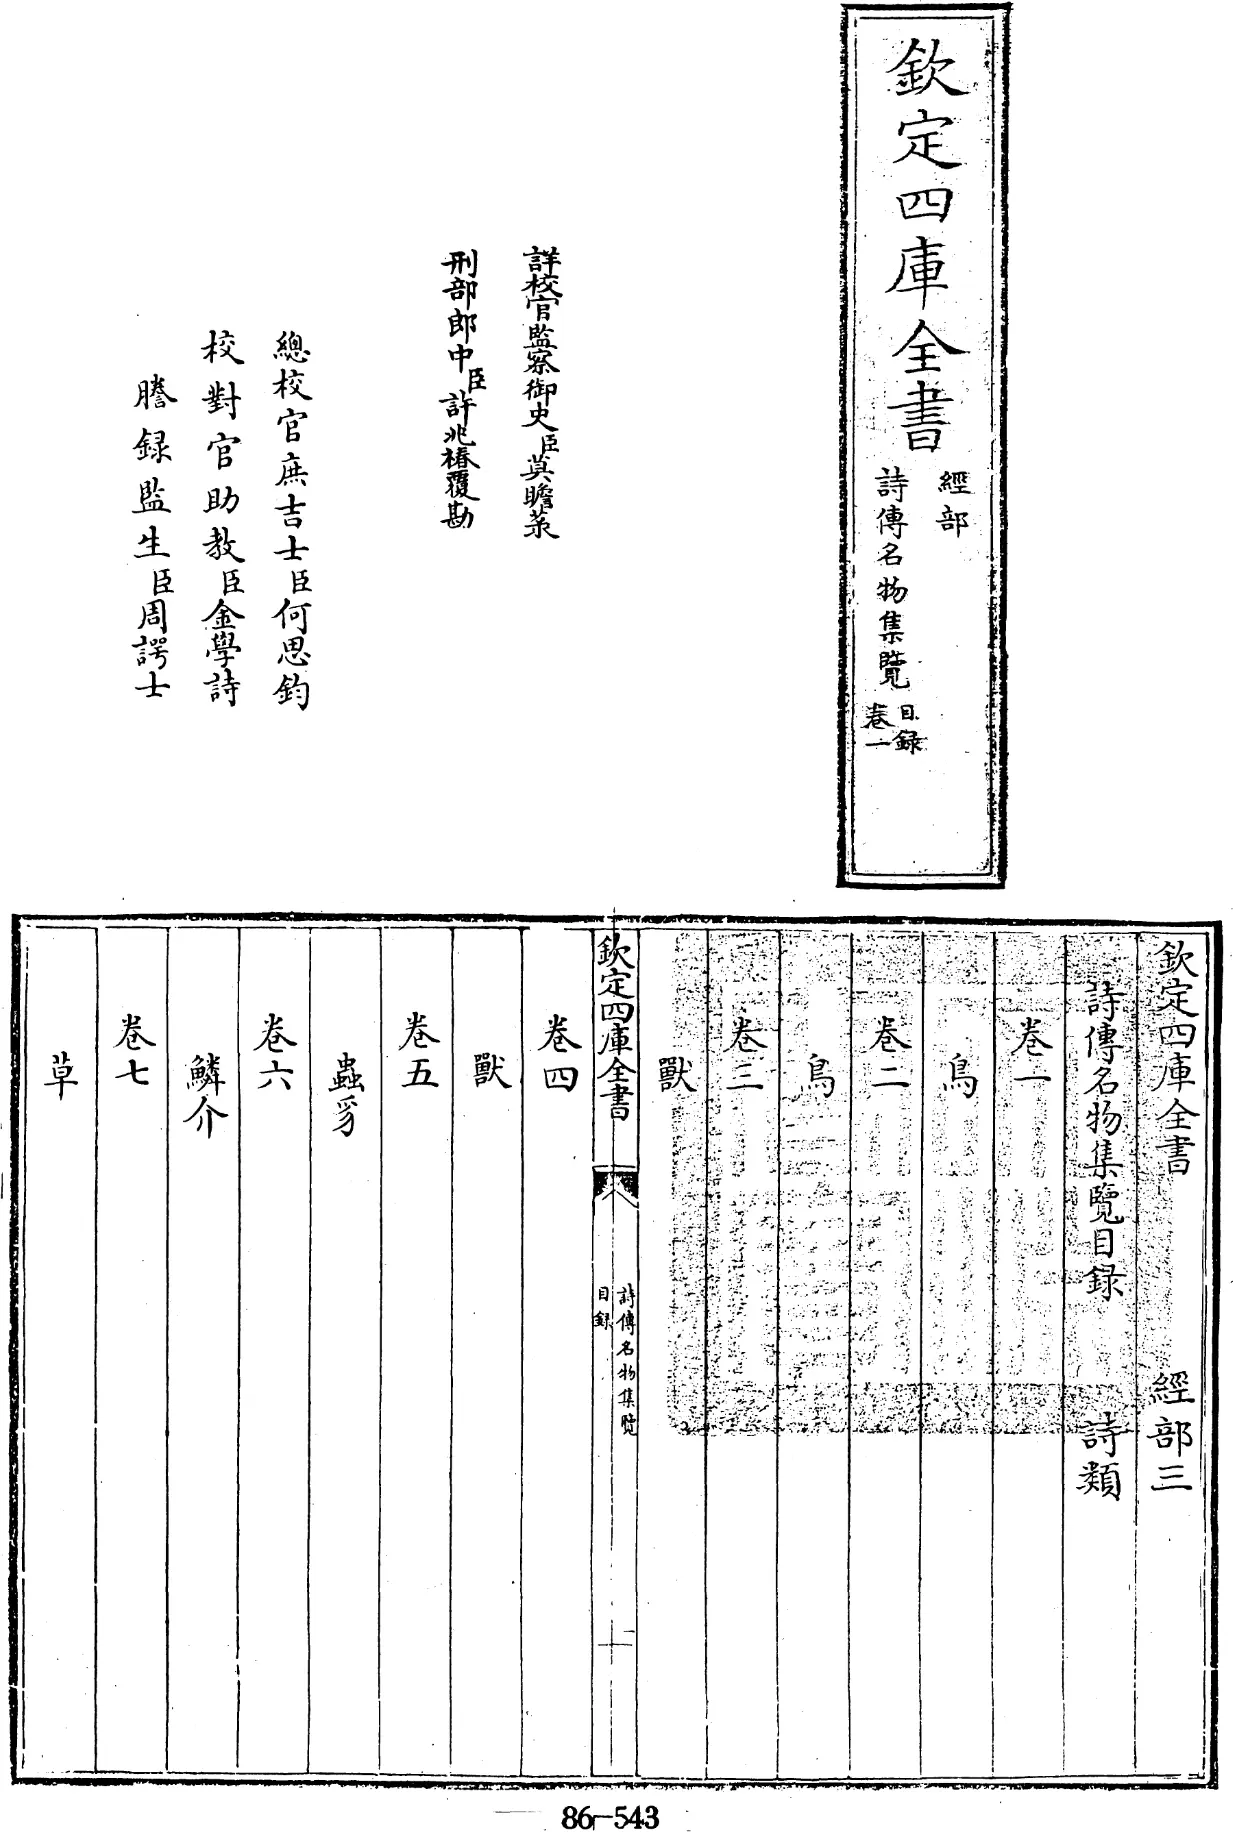 欽定四庫全書
經部
詩傳名物集覽
目録
卷一
詳校官監察御史臣莫瞻菉
刑部郎中臣許兆椿覆勘
總校官庶吉士臣何思鈞
校對官助教臣金學詩
謄録監生臣周諤士
欽定四庫全書 經部三
詩傳名物集覽目録 詩類
卷一
鳥
卷二
鳥
卷三
獸
欽定四庫全書
詩傳名物集覽
目録
一
卷四
獸
卷五
蟲豸
卷六
鱗介
卷七
草
86-543